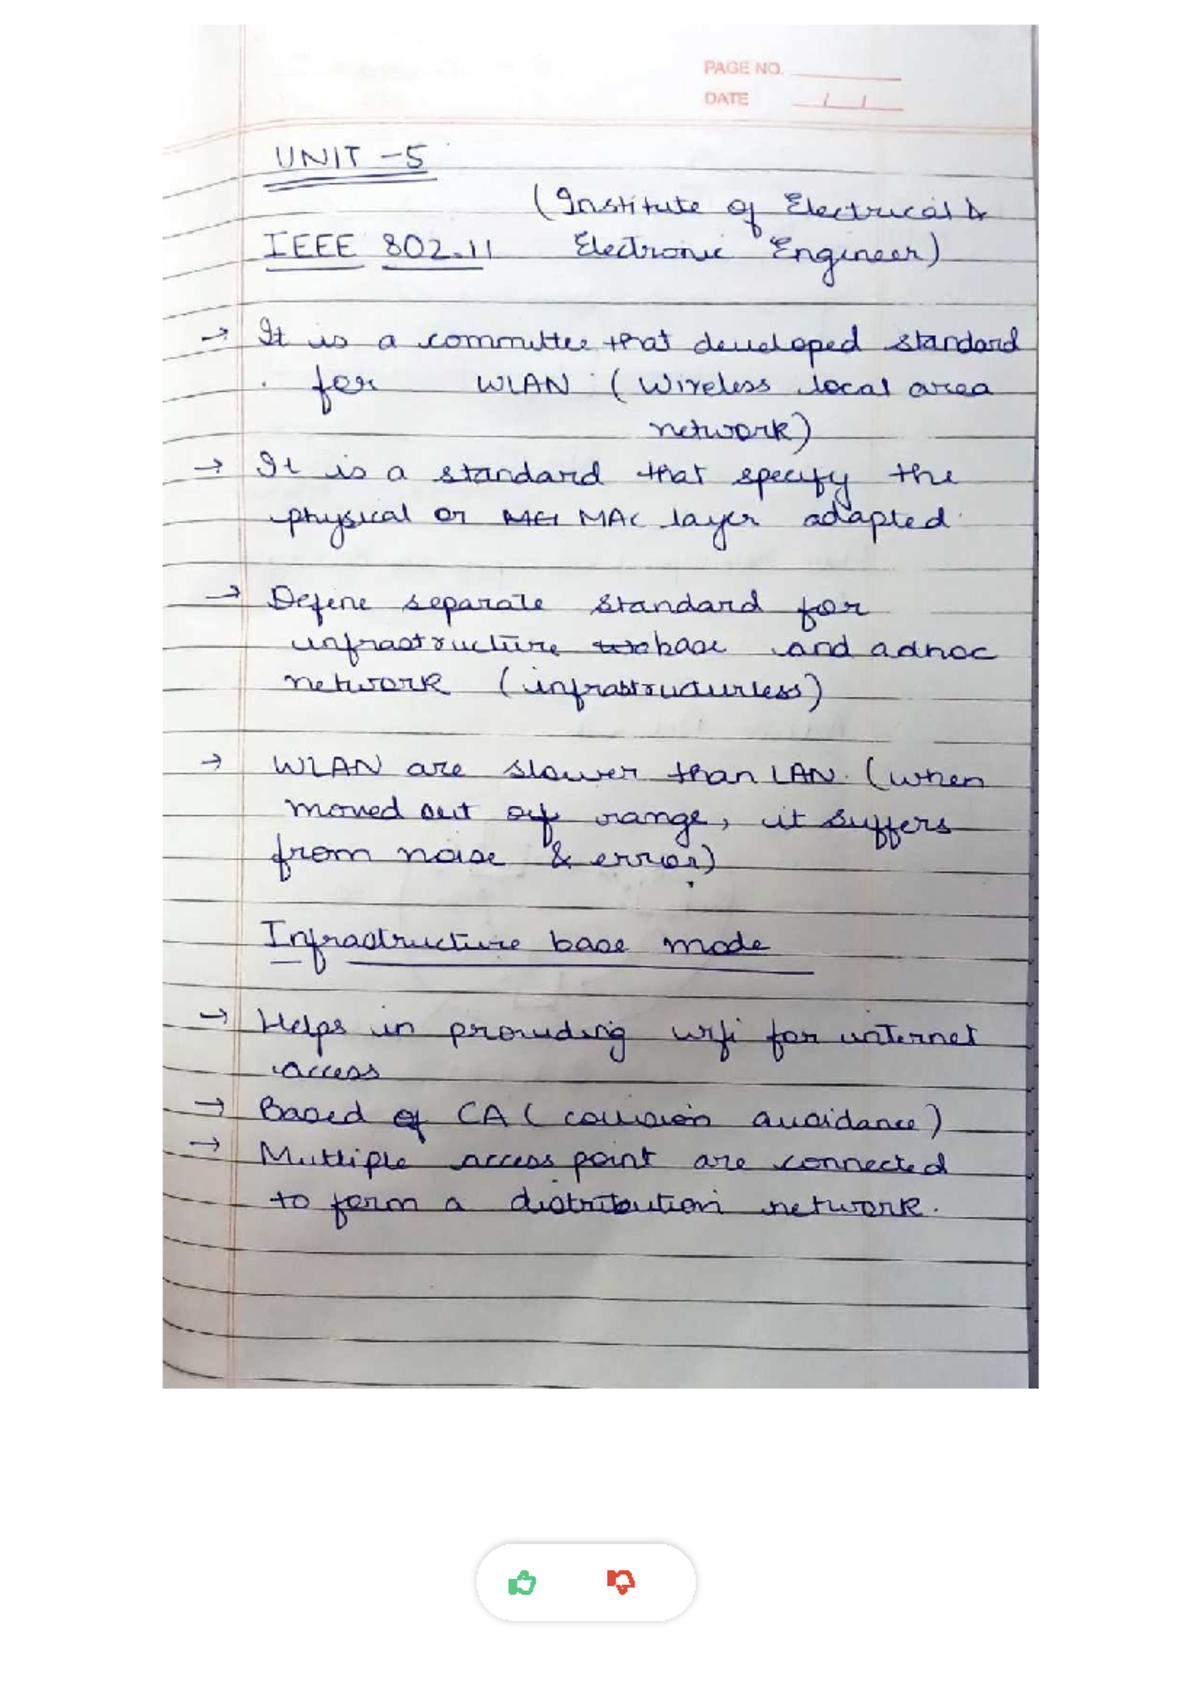 PAGE NO.
DATE
UNIT - 5
(Institute of Electrical &
IEEE 802.11 Electronic Engineer)
→ It is a committee that developed standard
for WLAN (Wireless local area
network)
→ It is a standard that specify the
physical or MAC layer adapted.
→ Define separate standard for
infrastructure base and adhoc
network (infrastructurless)
→ WLAN are slower than LAN. (when
moved out of range, it suffers
from noise & error)
Infrastructure base mode
→ Helps in providing wifi for internet
access
→ Based of CA (collision avoidance)
→ Multiple access point are connected
to form a distribution network.